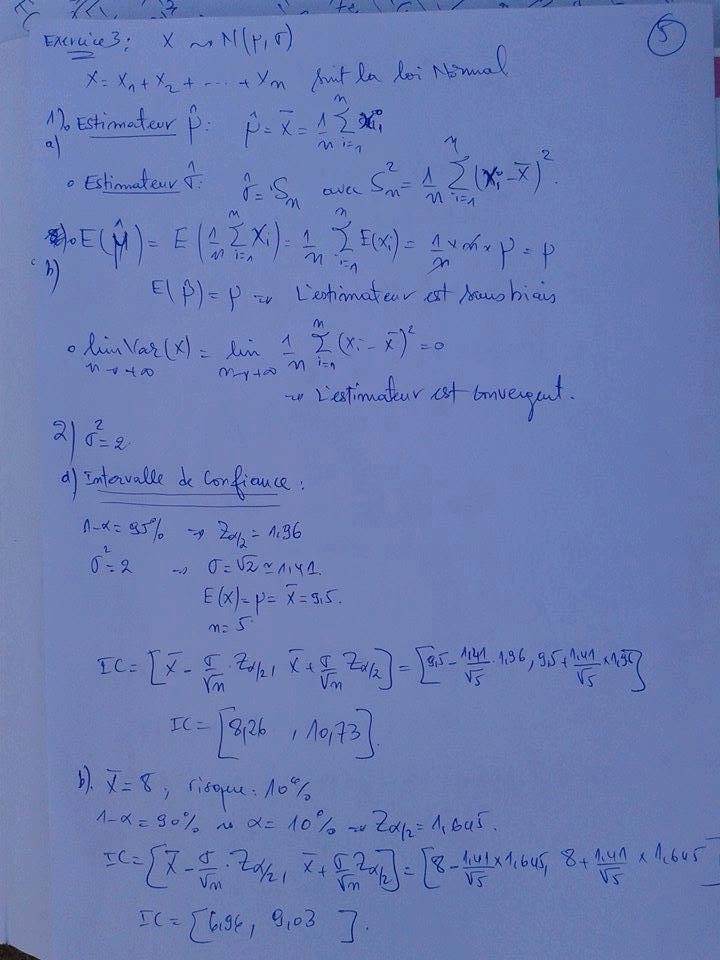 5
Exercice 3: X ~> N(μ, σ)
X = X₁ + X₂ + ---- + Xₙ suit la loi Normal
1%
a) Estimateur μ̂: μ̂ = X̄ = 1/n ∑ᵢ₌₁ⁿ Xᵢ
• Estimateur σ̂: σ̂ = Sₙ avec Sₙ² = 1/n ∑ᵢ₌₁ⁿ (Xᵢ - X̄)².
b) • E(μ̂) = E(1/n ∑ᵢ₌₁ⁿ Xᵢ) = 1/n ∑ᵢ₌₁ⁿ E(xᵢ) = 1/n × n × μ = μ
E(μ̂) = μ ⇒ L'estimateur est sans biais
• lim Var(X) n→+∞ = lim n→+∞ 1/n ∑ᵢ₌₁ⁿ (Xᵢ - X̄)² = 0
⇒ L'estimateur est convergent.
2) σ² = 2
a) Intervalle de Confiance :
1-α = 95% → Zα/2 = 1,96
σ² = 2 → σ = √2 ≃ 1,41.
E(X) = μ = X̄ = 9,5.
n = 5
IC = [X̄ - σ/√n · Zα/2, X̄ + σ/√n Zα/2] = [9,5 - 1,41/√5 · 1,96, 9,5 + 1,41/√5 × 1,96]
IC = [8,26 , 10,73].
b). X̄ = 8, risque: 10%
1-α = 90% → α = 10% → Zα/2 = 1,645.
IC = [X̄ - σ/√n · Zα/2, X̄ + σ/√n Zα/2] = [8 - 1,41/√5 × 1,645, 8 + 1,41/√5 × 1,645]
IC = [6,96, 9,03 ].